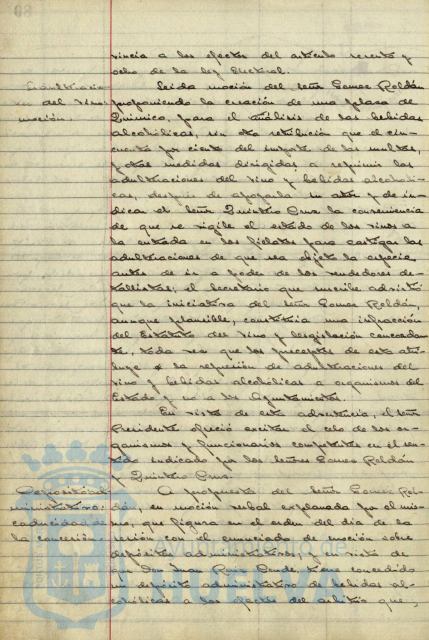 vincia a los efectos del artículo sesenta y
ocho de la Ley Electoral.
Leida moción del señor Gomez Roldán
del vino: proponiendo la creación de una plaza de
moción. Quimico, para el análisis de las bebidas
alcohólicas, sin otra retribución que el cin-
cuenta por ciento del importe de las multas,
y otras medidas dirigidas a reprimir las
adulteraciones del vino y bebidas alcoholi-
cas, despues de apoyarla su autor y de in-
dicar el señor Quintero Cruz la conveniencia
de que se vigile el estado de los vinos a
la entrada en los fielatos para castigar las
adulteraciones de que sea objeto la especie,
antes de ir a poder de los vendedores de-
tallistas; el Secretario que suscribe advirtió
que la iniciativa del señor Gomez Roldán,
aunque plausible, constituia una infracción
del Estatuto del vino y legislación concordan-
te, toda vez que los preceptos de esta atri-
buye la represión de adulteraciones del
vino y bebidas alcohólicas a organismos del
Estado y no a los Ayuntamientos.
En vista de esta advertencia, el señor
Presidente ofreció excitar el celo de los or-
ganismos y funcionarios competentes en el sen-
tido indicado por los señores Gomez Roldán
y Quintero Cruz.
Deposito ad- A propuesta del señor Gomez Rol-
ministrativo: dán, en moción verbal explanada por el mis-
caducidad de mo, que figura en el orden del dia de la
la concesión. sesión con el enunciado de moción sobre
depósitos administrativos, y en vista de
que Don Juan Ruiz Conde tiene concedido
un depósito administrativo de bebidas al-
cohólicas a los efectos del arbitrio que,